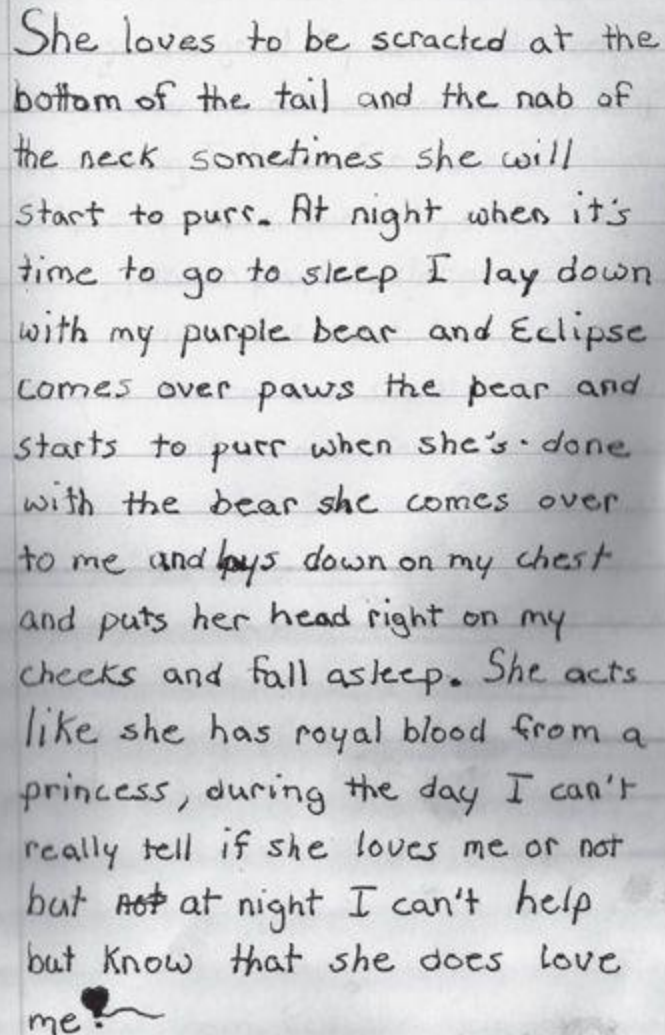 She loves to be scracted at the
bottom of the tail and the nab of
the neck sometimes she will
start to purr. At night when it's
time to go to sleep I lay down
with my purple bear and Eclipse
comes over paws the bear and
starts to purr when she's done
with the bear she comes over
to me and lays down on my chest
and puts her head right on my
cheeks and fall asleep. She acts
like she has royal blood from a
princess, during the day I can't
really tell if she loves me or not
but not at night I can't help
but know that she does love
me!